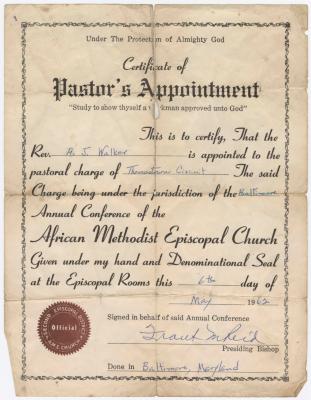 Under The Protection of Almighty God
Certificate of
Pastor's Appointment
"Study to show thyself a workman approved unto God"
This is to certify, That the
Rev. A. J. Walker is appointed to the
pastoral charge of Circuit The said
Charge being under the jurisdiction of the Baltimore
Annual Conference of the
African Methodist Episcopal Church
Given under my hand and Denominational Seal
at the Episcopal Rooms this 6th day of
May 1962
Signed in behalf of said Annual Conference
Frank M Reid
Presiding Bishop
Done in Baltimore, Maryland
SECOND EPISCOPAL DISTRICT
Official
A.M.E. CHURCH